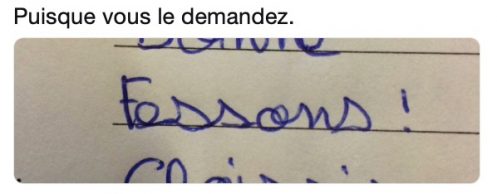 Puisque vous le demandez.
Fessons !